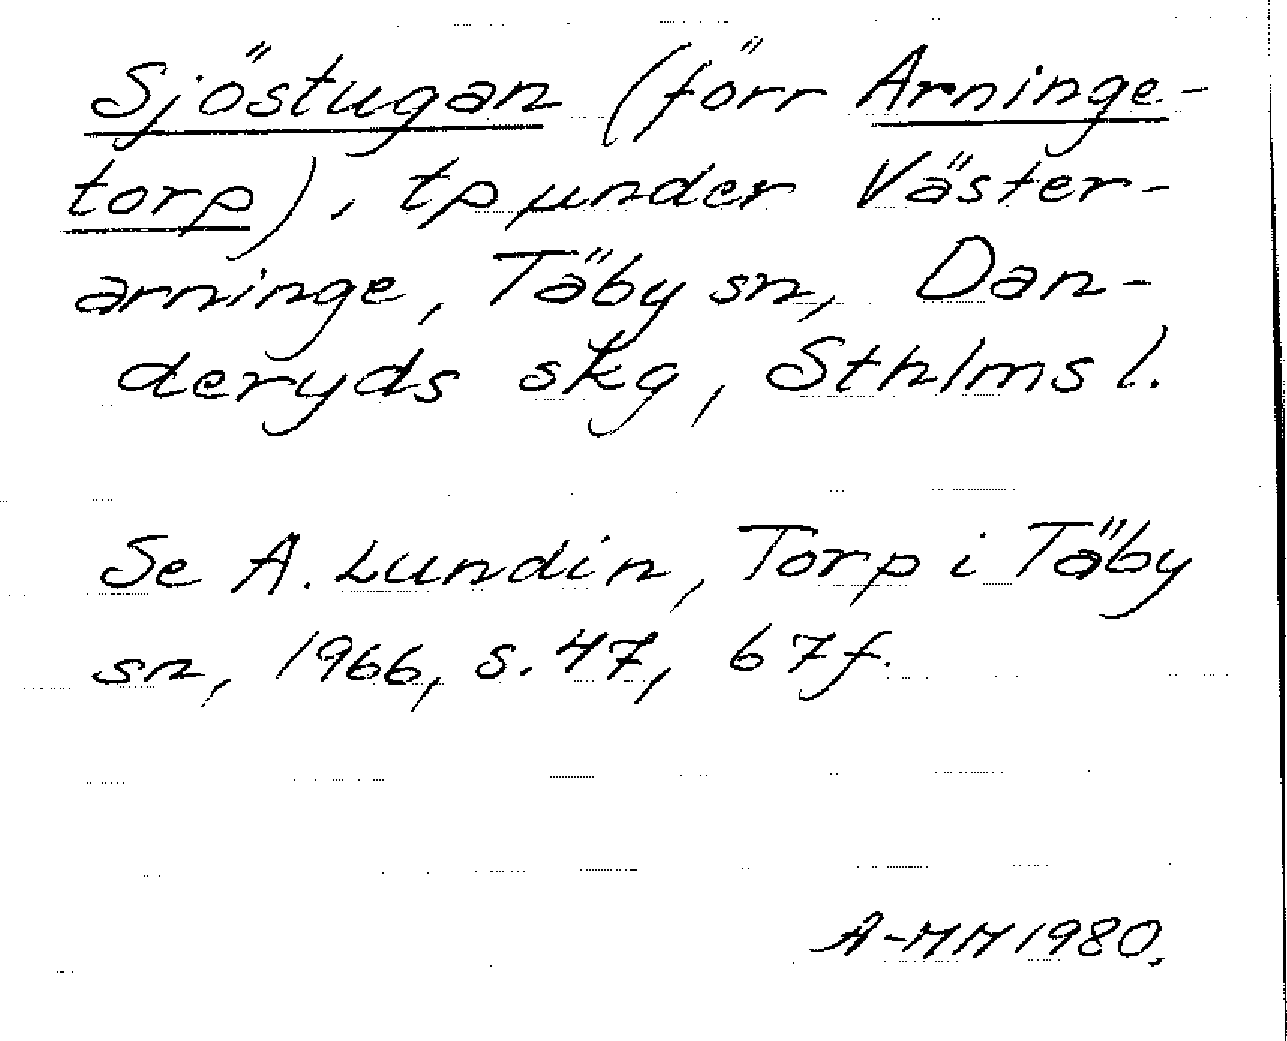 Sjöstugan (förr Arninge-
torp), tp under Väster-
arninge, Täby sn, Dan-
deryds skg, Sthlms l.
Se A. Lundin, Torp i Täby
sn, 1966, s. 47, 67f.
A-MH 1980.